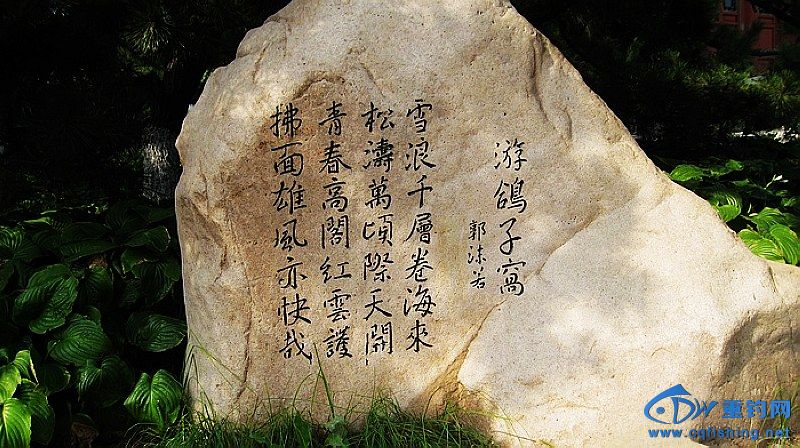 游鴿子窩
郭沫若
雪浪千層卷海來
松濤萬頃際天開
青春高閣紅雲護
拂面雄風亦快哉
重钓网
www.cqfishing.net